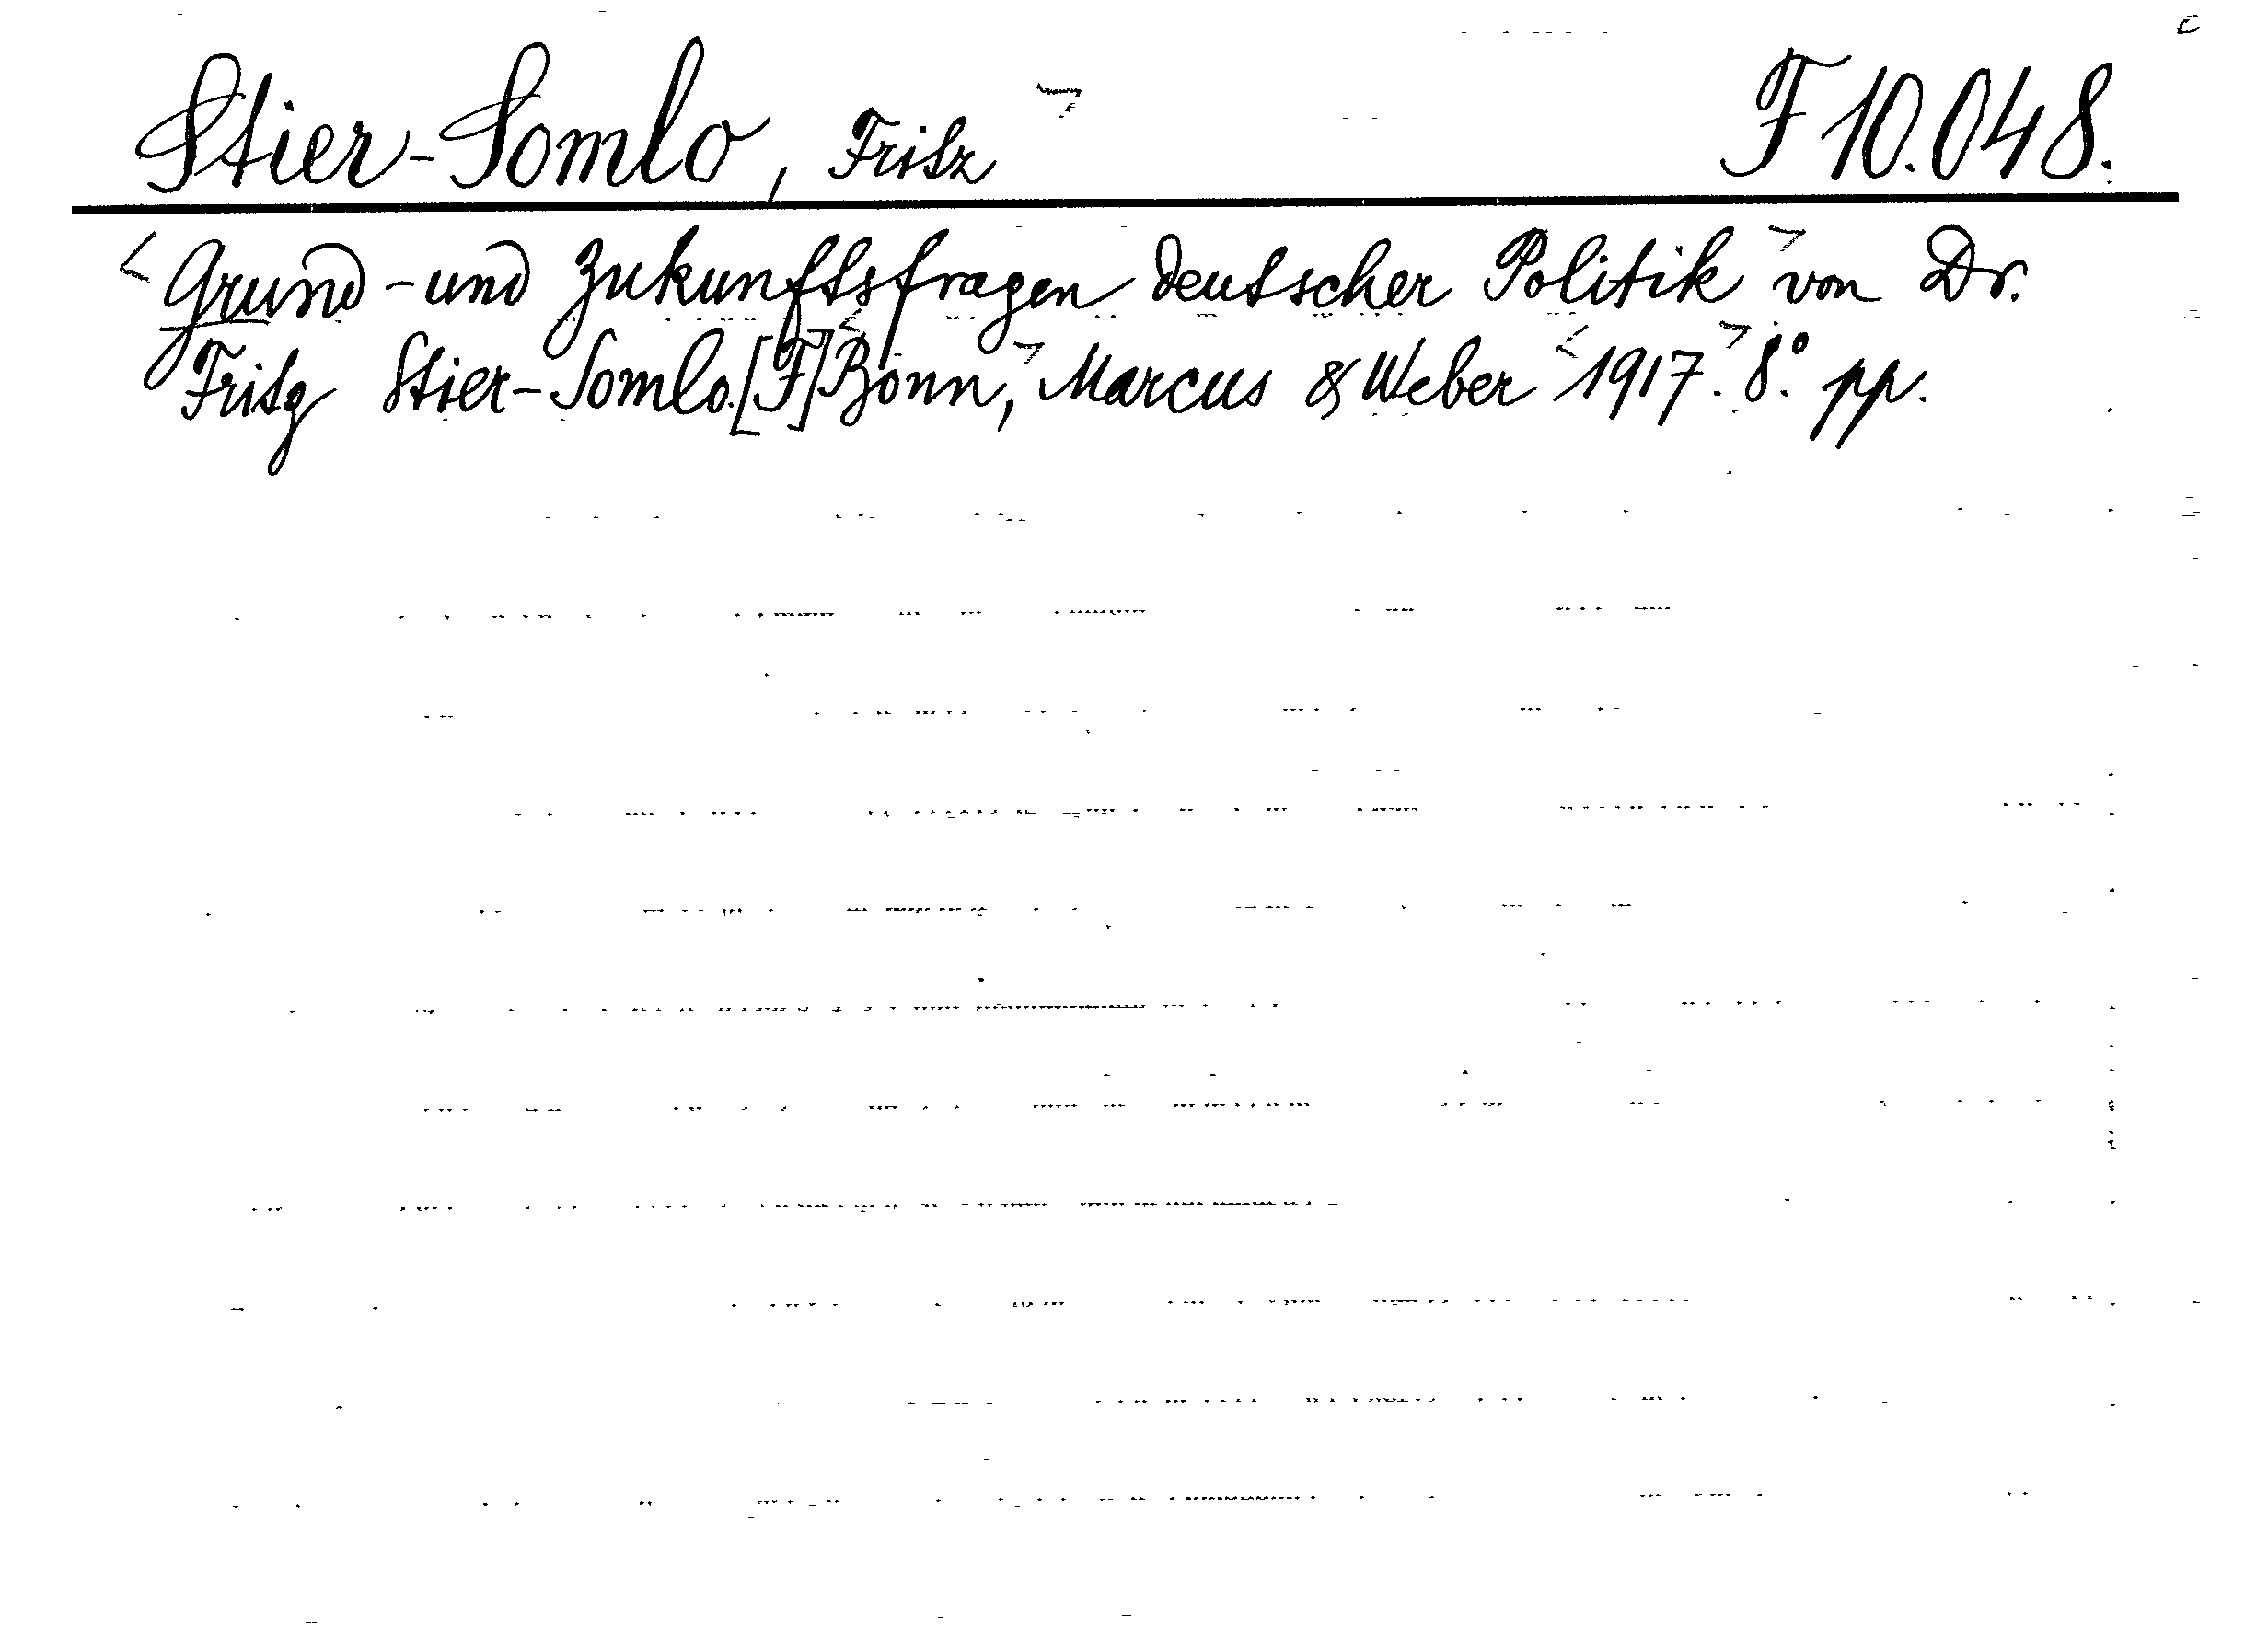 Stier-Somlo, Fritz > F 10.048.
<Grund- und Zukunftsfragen deutscher Politik> von Dr.
Fritz Stier-Somlo. [F] <Bonn,> Marcus & Weber <1917.> 8.° pp.